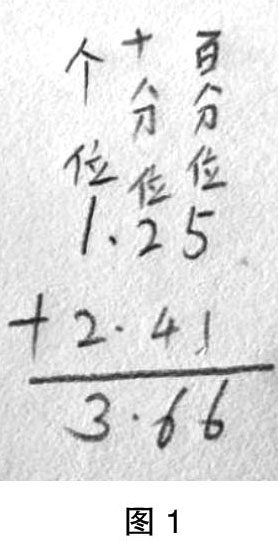 个 十 百
分 分
位 位 位
1.25
+ 2.41
3.66
图 1